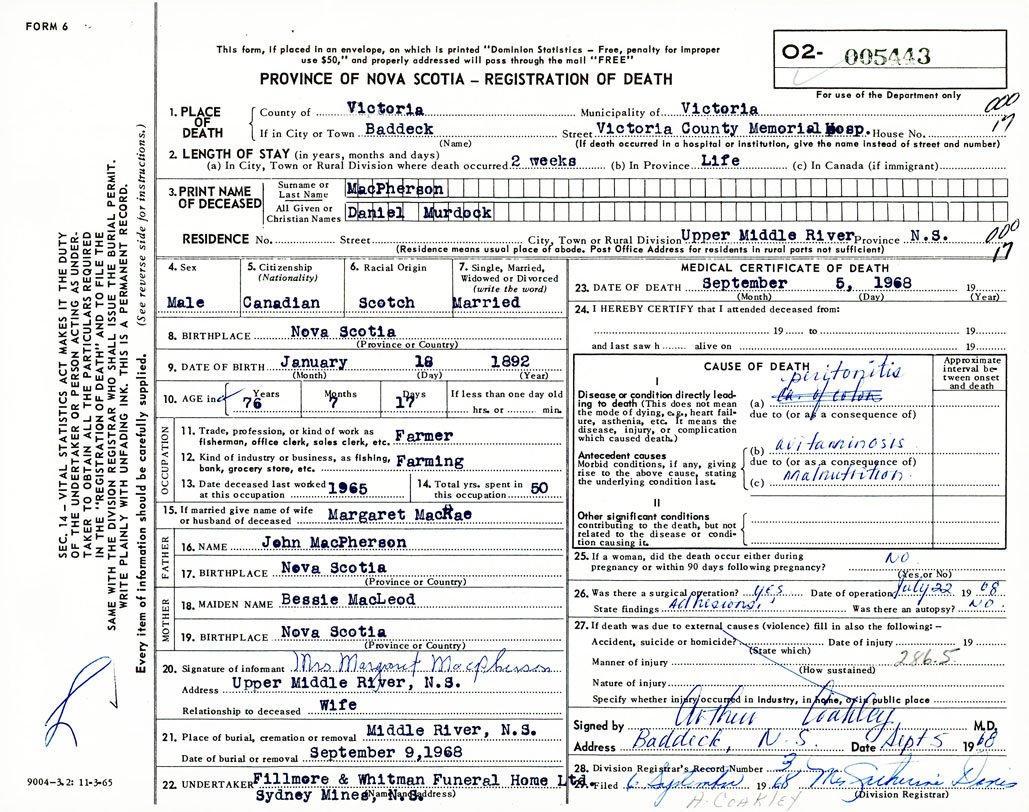 FORM 6
This form, if placed in an envelope, on which is printed "Dominion Statistics – Free, penalty for improper
use $50," and properly addressed will pass through the mail "FREE"
PROVINCE OF NOVA SCOTIA – REGISTRATION OF DEATH
O2- 005443
For use of the Department only
1. PLACE OF DEATH
County of Victoria Municipality of Victoria 000
If in City or Town Baddeck Street Victoria County Memorial Hosp. House No. 17
(Name) (If death occurred in a hospital or institution, give the name instead of street and number)
2. LENGTH OF STAY (in years, months and days)
(a) In City, Town or Rural Division where death occurred 2 weeks (b) In Province Life (c) In Canada (if immigrant)
3. PRINT NAME OF DECEASED
Surname or Last Name MacPherson
All Given or Christian Names Daniel Murdock
RESIDENCE No. Street City, Town or Rural Division Upper Middle River Province N.S. 000
(Residence means usual place of abode. Post Office Address for residents in rural parts not sufficient) 17
4. Sex
Male
5. Citizenship
(Nationality)
Canadian
6. Racial Origin
Scotch
7. Single, Married,
Widowed or Divorced
(write the word)
Married
8. BIRTHPLACE Nova Scotia
(Province or Country)
9. DATE OF BIRTH January 18 1892
(Month) (Day) (Year)
10. AGE in Years Months Days If less than one day old
76 7 17 hrs. or min.
OCCUPATION
11. Trade, profession, or kind of work as
fisherman, office clerk, sales clerk, etc. Farmer
12. Kind of industry or business, as fishing,
bank, grocery store, etc. Farming
13. Date deceased last worked
at this occupation 1965
14. Total yrs. spent in
this occupation 50
15. If married give name of wife
or husband of deceased Margaret MacRae
FATHER
16. NAME John MacPherson
17. BIRTHPLACE Nova Scotia
(Province or Country)
MOTHER
18. MAIDEN NAME Bessie MacLeod
19. BIRTHPLACE Nova Scotia
(Province or Country)
20. Signature of informant Mrs Margaret Macpherson
Address Upper Middle River, N.S.
Relationship to deceased Wife
21. Place of burial, cremation or removal Middle River, N.S.
Date of burial or removal September 9,1968
22. UNDERTAKER Fillmore & Whitman Funeral Home Ltd.
Sydney Mines, N.S.
(Name and address)
MEDICAL CERTIFICATE OF DEATH
23. DATE OF DEATH September 5, 1968 19
(Month) (Day) (Year)
24. I HEREBY CERTIFY that I attended deceased from:
19 to 19
and last saw h alive on 19
CAUSE OF DEATH
Approximate
interval be-
tween onset
and death
I
Disease or condition directly lead-
ing to death (This does not mean
the mode of dying, e.g., heart fail-
ure, asthenia, etc. It means the
disease, injury, or complication
which caused death.)
peritonitis
(a) Ca. of colon
due to (or as a consequence of)
Antecedent causes
Morbid conditions, if any, giving
rise to the above cause, stating
the underlying condition last.
(b) avitaminosis
due to (or as a consequence of)
(c) malnutrition.
II
Other significant conditions
contributing to the death, but not
related to the disease or condi-
tion causing it.
25. If a woman, did the death occur either during
pregnancy or within 90 days following pregnancy? NO
(Yes or No)
26. Was there a surgical operation? yes Date of operation July 22 19 68
State findings Adhesions. Was there an autopsy? NO.
27. If death was due to external causes (violence) fill in also the following: –
Accident, suicide or homicide? Date of injury 19
(State which)
Manner of injury 286.5
(How sustained)
Nature of injury
Specify whether injury occurred in Industry, in home, or in public place
Signed by Arthur Coakley M.D.
Address Baddeck, N.S. Date Sept 5 1968
28. Division Registrar's Record Number 3
29. Filed 6 September 1968 Mrs Catherine Davis
(Division Registrar)
A. COAKLEY
SEC. 14 – VITAL STATISTICS ACT MAKES IT THE DUTY
OF THE UNDERTAKER OR PERSON ACTING AS UNDER-
TAKER TO OBTAIN ALL THE PARTICULARS REQUIRED
IN THE "REGISTRATION OF DEATH" AND TO FILE THE
SAME WITH THE DIVISION REGISTRAR WHO SHALL ISSUE THE BURIAL PERMIT.
WRITE PLAINLY WITH UNFADING INK. THIS IS A PERMANENT RECORD.
Every item of information should be carefully supplied. (See reverse side for instructions.)
9004–3.2: 11-3-65